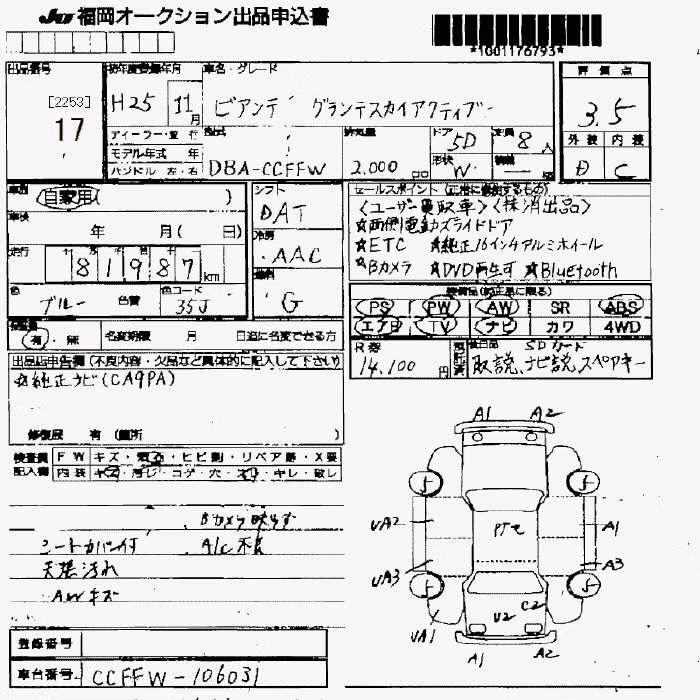 JU 福岡オークション出品申込書
*1001176793*
出品番号
[2253]
17
初年度登録年月
H25 11月
車名・グレード
ビアンテ グランテスカイアクティブ
評価点
3.5
外装 内装
D C
ディーラー・並行
モデル年式 年
ハンドル 左・右
型式
DBA-CCFFW
排気量
2,000 cc
ドア
5D
形状
W
定員
8人
積載
車歴
自家用 ( )
車検
年 月( 日)
走行
81987km
色
ブルー
色替
色コード
35J
シフト
DAT
冷房
AAC
燃料
G
セールスポイント (正常に機能するもの)
<ユーザー買取車> <抹消出品>
☆両側電動スライドドア
☆ETC ☆純正16インチアルミホイール
☆Bカメラ ☆DVD再生可 ☆Bluetooth
装備品(純正品に限る)
PS PW AW SR ABS
エアB TV ナビ カワ 4WD
有・無
名変期限 月 日迄に名変できる方
R券
14,100円
後日品
SDカード
取説、ナビ説、スペアキー
出品店申告欄 (不良内容・欠品など具体的に記入して下さい)
☆純正ナビ(CA9PA)
修復歴 有 (箇所 )
検査員 FW キズ・飛石・ヒビ割・リペア跡・X要
記入欄 内装 キズ・汚レ・コゲ・穴・スレ・キレ・破レ
Bカメラ映らず
シートカバー付 A/C不良
天張汚れ
AWキズ
登録番号
車台番号 CCFFW-106031
A1 A2
5 5
UA2 PTセ A1
UA3 A3
5 5
UA1 U2 C2
A1 A2